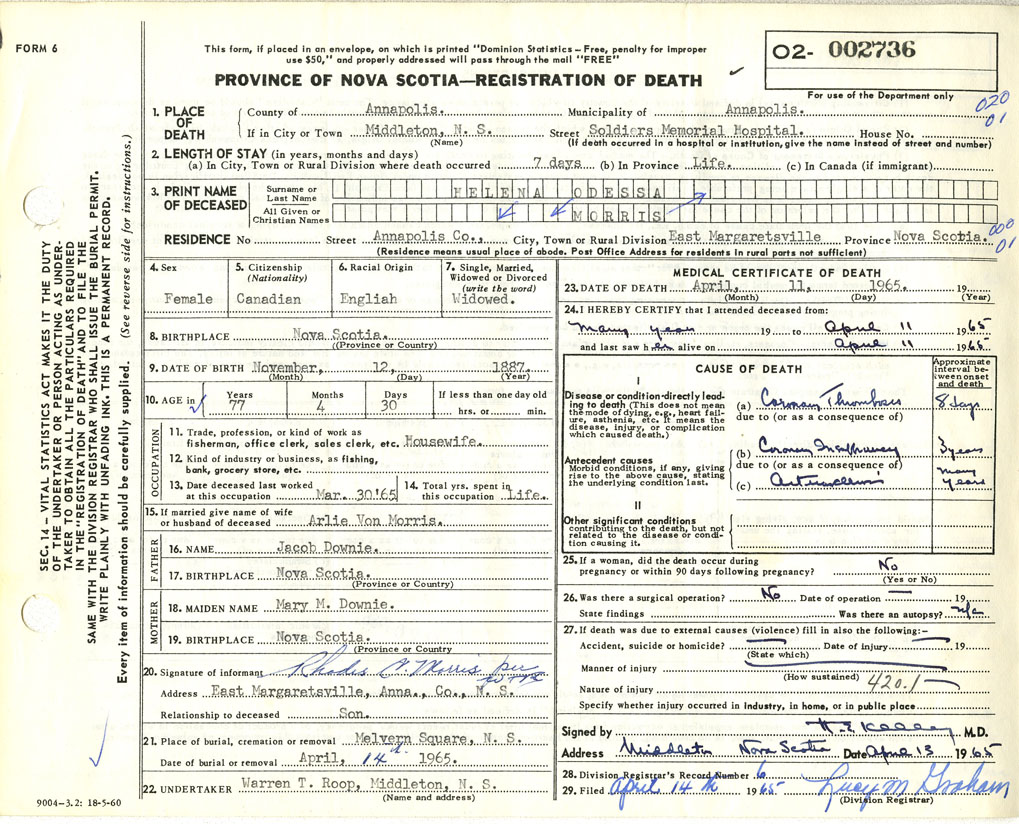 FORM 6
This form, if placed in an envelope, on which is printed "Dominion Statistics—Free, penalty for improper
use $50," and properly addressed will pass through the mail "FREE"
PROVINCE OF NOVA SCOTIA—REGISTRATION OF DEATH
O2- 002736
For use of the Department only
020
01
1. PLACE OF DEATH
County of Annapolis. Municipality of Annapolis.
If in City or Town Middleton, N. S. Street Soldiers Memorial Hospital. House No.
(Name) (If death occurred in a hospital or institution, give the name instead of street and number)
2. LENGTH OF STAY (in years, months and days)
(a) In City, Town or Rural Division where death occurred 7 days (b) In Province Life. (c) In Canada (if immigrant)
3. PRINT NAME OF DECEASED
Surname or Last Name HELENA ODESSA
All Given or Christian Names MORRIS
000
01
RESIDENCE No Street Annapolis Co., City, Town or Rural Division East Margaretsville Province Nova Scotia.
(Residence means usual place of abode. Post Office Address for residents in rural parts not sufficient)
4. Sex
Female
5. Citizenship (Nationality)
Canadian
6. Racial Origin
Engliah
7. Single, Married, Widowed or Divorced (write the word)
Widowed.
8. BIRTHPLACE Nova Scotia.
((Province or Country)
9. DATE OF BIRTH November, 12, 1887.
(Month) (Day) (Year)
10. AGE in Years Months Days If less than one day old
77 4 30 hrs. or min.
OCCUPATION
11. Trade, profession, or kind of work as
fisherman, office clerk, sales clerk, etc. Housewife.
12. Kind of industry or business, as fishing,
bank, grocery store, etc.
13. Date deceased last worked
at this occupation Mar. 30'65
14. Total yrs. spent in
this occupation Life.
15. If married give name of wife
or husband of deceased Arlie Von Morris.
FATHER
16. NAME Jacob Downie.
17. BIRTHPLACE Nova Scotia.
(Province or Country)
MOTHER
18. MAIDEN NAME Mary M. Downie.
19. BIRTHPLACE Nova Scotia.
(Province or Country)
20. Signature of informant Rhodes C. Morris per
Address East Margaretsville, Anna., Co., N. S.
Relationship to deceased Son.
21. Place of burial, cremation or removal Melvern Square, N. S.
Date of burial or removal April, 14th 1965.
22. UNDERTAKER Warren T. Roop, Middleton, N. S.
(Name and address)
MEDICAL CERTIFICATE OF DEATH
23. DATE OF DEATH April, 11, 1965. 19
(Month) (Day) (Year)
24. I HEREBY CERTIFY that I attended deceased from:
many year 19 to April 11 1965
and last saw her alive on April 11 1965
CAUSE OF DEATH
Approximate interval between onset and death
I
Disease or condition directly leading to death (This does not mean the mode of dying, e.g., heart failure, asthenia, etc. It means the disease, injury, or complication which caused death.)
(a) Coronary Thrombosis 8 days
due to (or as a consequence of)
Antecedent causes
Morbid conditions, if any, giving rise to the above cause, stating the underlying condition last.
(b) Coronary Insufficiency 3 years
due to (or as a consequence of)
(c) many years
II
Other significant conditions
contributing to the death, but not related to the disease or condition causing it.
25. If a woman, did the death occur during
pregnancy or within 90 days following pregnancy? No
(Yes or No)
26. Was there a surgical operation? No Date of operation — 19
State findings Was there an autopsy? n/a
27. If death was due to external causes (violence) fill in also the following:-
Accident, suicide or homicide? Date of injury 19
(State which)
Manner of injury
(How sustained)
420.1
Nature of injury
Specify whether injury occurred in industry, in home, or in public place
Signed by H. E. Kelley M.D.
Address Middleton Nova Scotia Date April 13 1965
28. Division Registrar's Record Number 6
29. Filed April 14th 1965 Lucy M Graham
(Division Registrar)
SEC. 14—VITAL STATISTICS ACT MAKES IT THE DUTY
OF THE UNDERTAKER OR PERSON ACTING AS UNDER-
TAKER TO OBTAIN ALL THE PARTICULARS REQUIRED
IN THE "REGISTRATION OF DEATH" AND TO FILE THE
SAME WITH THE DIVISION REGISTRAR WHO SHALL ISSUE THE BURIAL PERMIT.
WRITE PLAINLY WITH UNFADING INK. THIS IS A PERMANENT RECORD.
Every item of information should be carefully supplied. (See reverse side for instructions.)
9004—3.2: 18-5-60